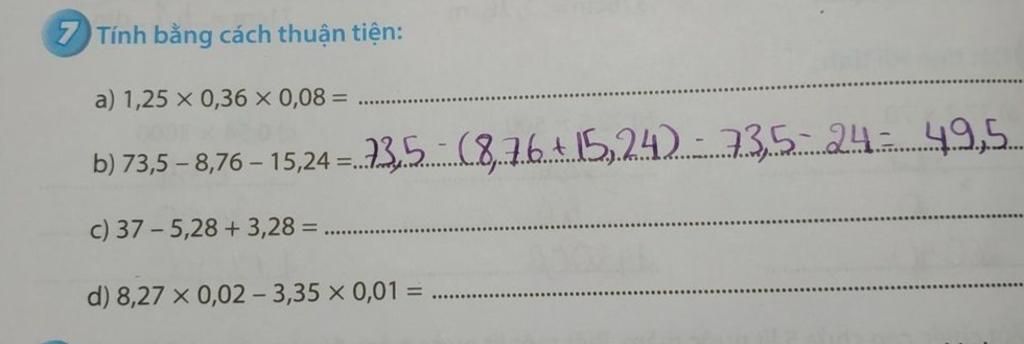 7 Tính bằng cách thuận tiện:
a) 1,25 × 0,36 × 0,08 = ........................................
b) 73,5 – 8,76 – 15,24 = 73,5 - (8,76 + 15,24) - 73,5 - 24 = 49,5
c) 37 – 5,28 + 3,28 = ........................................
d) 8,27 × 0,02 – 3,35 × 0,01 = ........................................